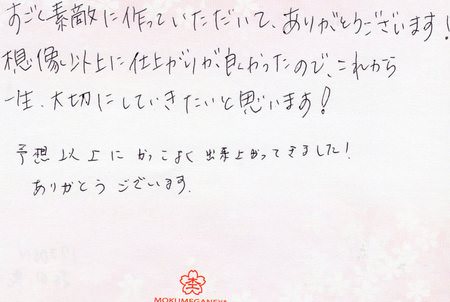 すごく素敵に作っていただいて、ありがとうございます！
想像以上に仕上がりが良かったので、これから
一生、大切にしていきたいと思います！
予想以上にかっこよく出来上がってきました！
ありがとうございます。
MOKUMEGANEYA